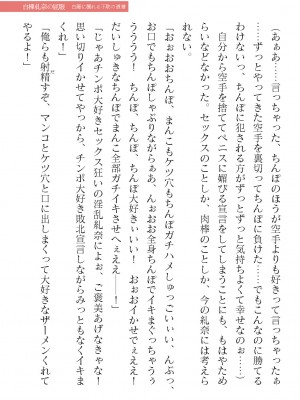 (あぁ、あ……言っちゃった、ちんぽのほうが空手よりも好きって言っちゃったぁ
……ずっとやってきた空手を裏切ってちんぽに負けた……でもこんなのに勝てる
わけないっ、ちんぽに犯される方がずっとずっと気持ちよくて幸せなのぉ……)
自分から空手を捨ててペニスに媚びる宣言をしてしまうことにも、もはやため
らいなどなかった。セックスのことしか、肉棒のことしか、今の礼奈には考えら
れない。
『おぉおおちんぽ、まんこもケツ穴もちんぽガチハメしゅっごぃいぃ、んぶっ、
お口でもちんぽしゃぶりながらぁあ、んおぉお全身ちんぽでイキまくっちゃうぅ
ううううう! ちんぽ、ちんぽ、ちんぽ大好きぃいぃ! おぉおイかせでぇえ、
だいしゅきなちんぽでまんこ全部ガチイキさせへぇええ──!』
『じゃあチンポ大好きセックス狂いの淫乱礼奈によぉ、ご褒美あげなきゃな!
思い切りイかせてやっから、チンポ大好き敗北宣言しながらみっともなくイキま
くれ!』
『俺らも射精すぞ、マンコとケツ穴と口に出しまくって大好きなザーメンくれて
やるよ!』